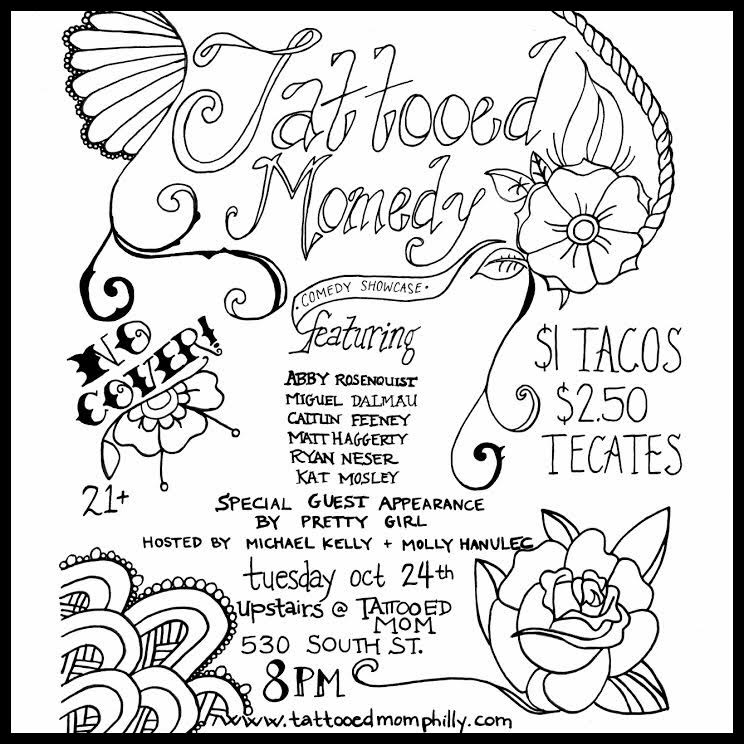 Tattooed
Momedy
• COMEDY SHOWCASE •
featuring
NO
COVER!
21+
ABBY ROSENQUIST
MIGUEL DALMAU
CAITLIN FEENEY
MATT HAGGERTY
RYAN NESER
KAT MOSLEY
$1 TACOS
$2.50
TECATES
SPECIAL GUEST APPEARANCE
BY PRETTY GIRL
HOSTED BY MICHAEL KELLY + MOLLY HANULEC
tuesday oct 24th
upstairs @ TATTOOED
MOM
530 SOUTH ST.
8PM
www.tattooedmomphilly.com